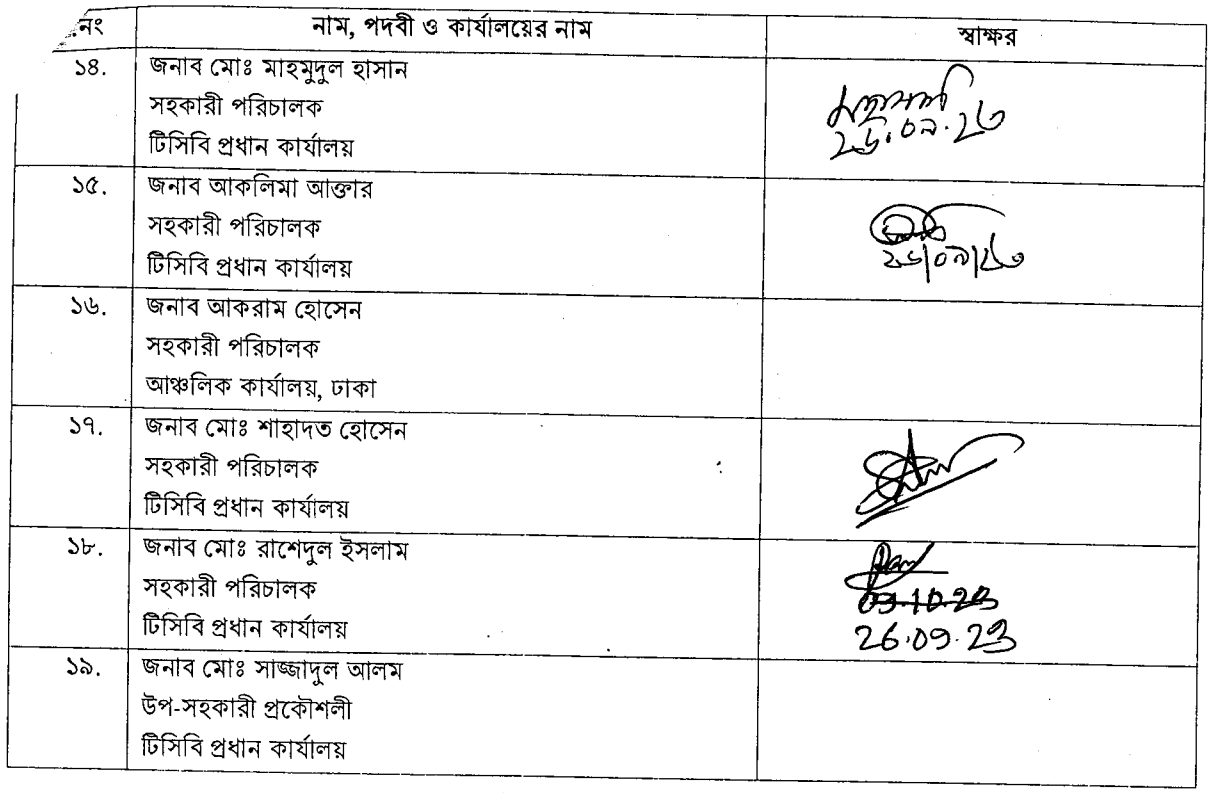 নং নাম, পদবী ও কার্যালয়ের নাম স্বাক্ষর
১৪. জনাব মোঃ মাহমুদুল হাসান
সহকারী পরিচালক
টিসিবি প্রধান কার্যালয়
২৬.০৯.২৩
১৫. জনাব আকলিমা আক্তার
সহকারী পরিচালক
টিসিবি প্রধান কার্যালয়
২৬/০৯/২৩
১৬. জনাব আকরাম হোসেন
সহকারী পরিচালক
আঞ্চলিক কার্যালয়, ঢাকা
১৭. জনাব মোঃ শাহাদত হোসেন
সহকারী পরিচালক
টিসিবি প্রধান কার্যালয়
১৮. জনাব মোঃ রাশেদুল ইসলাম
সহকারী পরিচালক
03.10.23
টিসিবি প্রধান কার্যালয়
26.09.23
১৯. জনাব মোঃ সাজ্জাদুল আলম
উপ-সহকারী প্রকৌশলী
টিসিবি প্রধান কার্যালয়